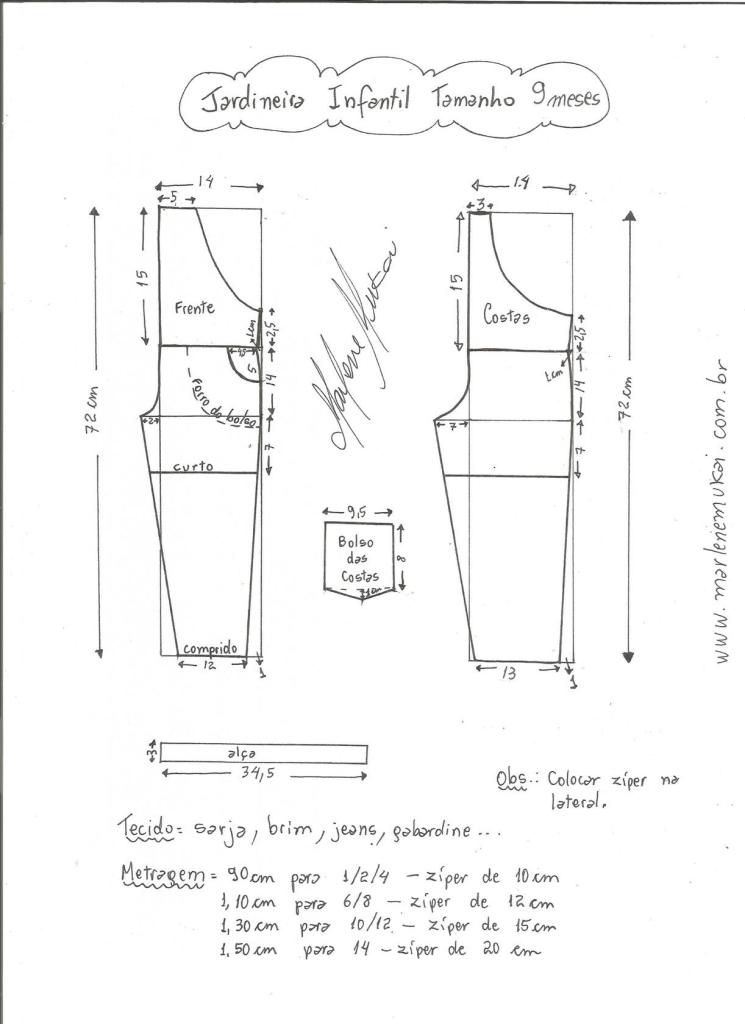 Jardineira Infantil Tamanho 9 meses
14
5
15
Frente
1cm
2,5
4,5
5
14
Forro do bolso
2
7
curto
72 cm
comprido
12
1
Marlene Mukai
14
3
15
Costas
2,5
1cm
14
7
7
72 cm
13
1
9,5
Bolso
das
Costas
8
www.marlenemukai.com.br
3
alça
34,5
Obs.: Colocar zíper na
lateral.
Tecido = sarja, brim, jeans, gabardine ...
Metragem = 90cm para 1/2/4 – zíper de 10 cm
1,10 cm para 6/8 – zíper de 12 cm
1,30 cm para 10/12 – zíper de 15 cm
1,50 cm para 14 – zíper de 20 cm